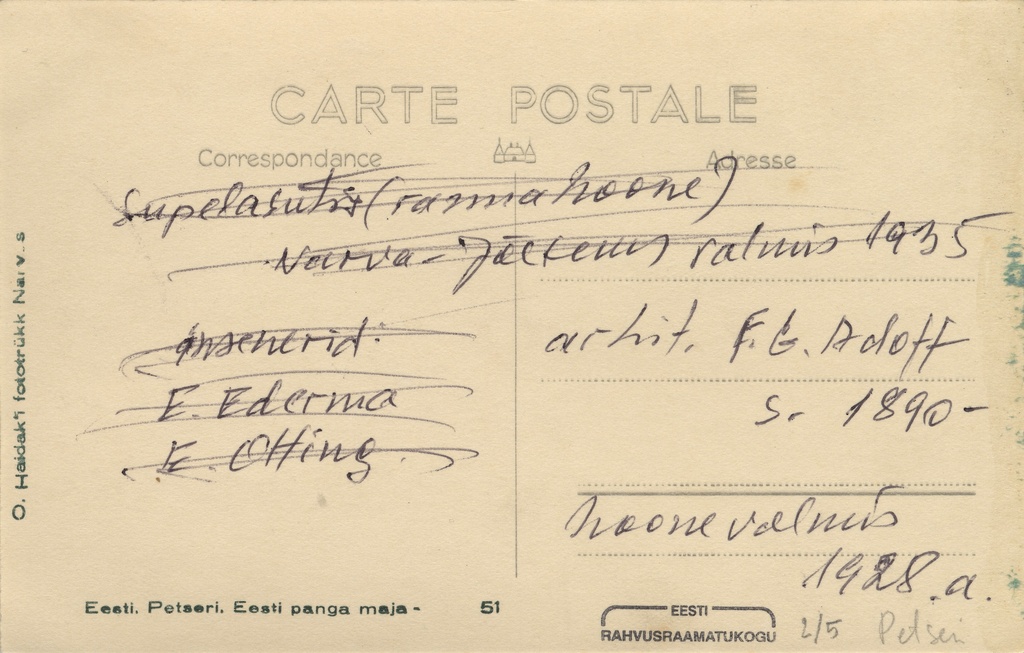 CARTE POSTALE
Correspondance
Adresse
Supelasutis (rannahoone)
Narva-Jõesuus valmis 1935
Insenerid.
E. Ederma
E. Otting
arhit. F. G. Adoff
s. 1890-
hoone valmis
1928.a.
O. Haidak'i fototrükk Narvas
Eesti. Petseri. Eesti panga maja - 51
EESTI
RAHVUSRAAMATUKOGU
2/5 Petseri